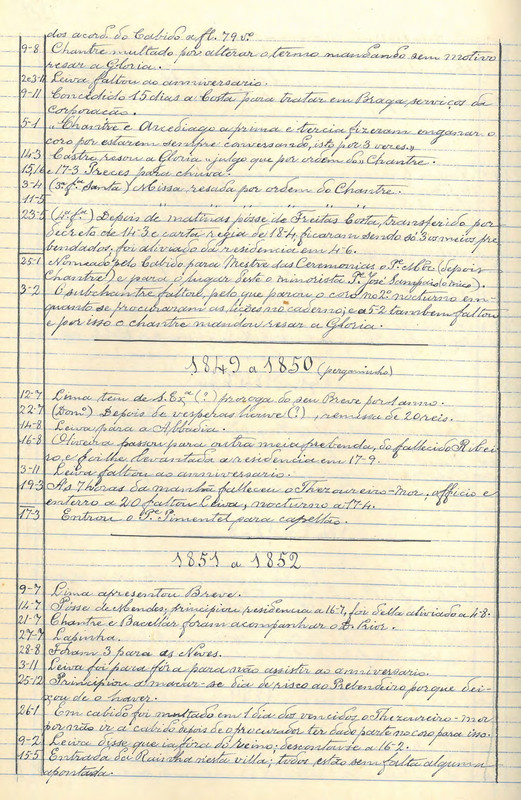 dos acord. do Cabido a fl. 79 vº
9-8 Chantre multado por alterar o termo mandando sem motivo
resar a Gloria.
2 e 3-11 Leiva faltou ao anniversario.
9-11 Concedido 15 dias a Costa para tratar em Braga serviços da
corporação.
5-1 "Chantre e Arcediago a prima e tercia fizeram enganar o
coro por estarem sempre conversando, isto por 3 vores."
14-3 Castro resou a Gloria "julgo que por ordem do" Chantre.
15, 16 e 17-3 Preces para chuva.
3-4 (3ª fª Santa) Missa resada por ordem do Chantre.
11-5 " " " " " " "
23-5 (4ª fª) Depois de matinas pósse de Freitas Costa, transferido por
decreto de 14-3 e carta regia de 18-4, ficaram sendo só 3 os meios pre-
bendados, foi aliviado da residencia em 4-6.
25-1 Nomeado pelo Cabido para Mestre das Ceremonias o Pe (depois
Chantre) e para o lugar deste o minorista Pe José Sampaio
3-2 O subchantre faltou, pelo que parou o coro no 2º nocturno em-
quanto se procuraram as lições no caderno; e a 5-2 tambem faltou
e por isso o chantre mandou resar a Gloria.
1849 a 1850 (pergaminho)
12-7 Lima tem de S. Exª (?) proroga do seu Breve por 1 anno.
22-7 (Domº) Depois de vesperas houve (?), remissa de 20 reis.
14-8 Leiva para a Abbadia.
16-8 Oliveira passou para outra meia prebenda, do fallecido Ribei-
ro, e foi-lhe levantada a residencia em 17-9.
3-11 Leiva faltou ao anniversario.
19-3 As 7 horas da manhã falleceu o Thezoureiro-mor, officio e
enterro a 20 faltou Leiva, nocturno a 17-4.
17-3 Entrou o Pe Pimentel para capellão.
1851 a 1852
9-7 Lima apresentou Breve.
14-7 Pósse de Mendes; principiou residencia a 16-7, foi della aliviado a 4-8.
21-7 Chantre e Bacellar foram acompanhar o D. Prior.
27-7 Lapinha.
28-8 Foram 3 para as Neves.
3-11 Leiva foi para fóra para não assistir ao anniversario.
25-12 Principiou a marcar-se dia de risco ao Prebendeiro porque dei-
xou de o haver.
26-1 Em cabido foi multado em 1 dia dos vencidos o Thezoureiro-mor
por não vir a cabido depois de o procurador ter dado parte no coro para isso.
9-2 Leiva disse que ia fóra do reino; descontou-se a 16-2.
15-5 Entrada da Rainha nesta villa; todos estão sem falta alguma
apontada.